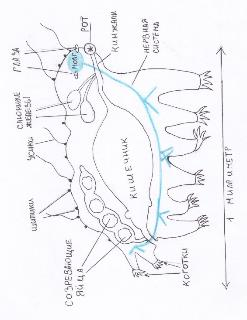 ГЛАЗА
МОЗГ
РОТ
КИНЖАЛЫ
НЕРВНАЯ
СИСТЕМА
СЛЮННЫЕ
ЖЕЛЕЗЫ
УСИКИ
ШИПИКИ
КИШЕЧНИК
СОЗРЕВАЮЩИЕ
ЯЙЦА
КОГОТКИ
1 МИЛЛИМЕТР